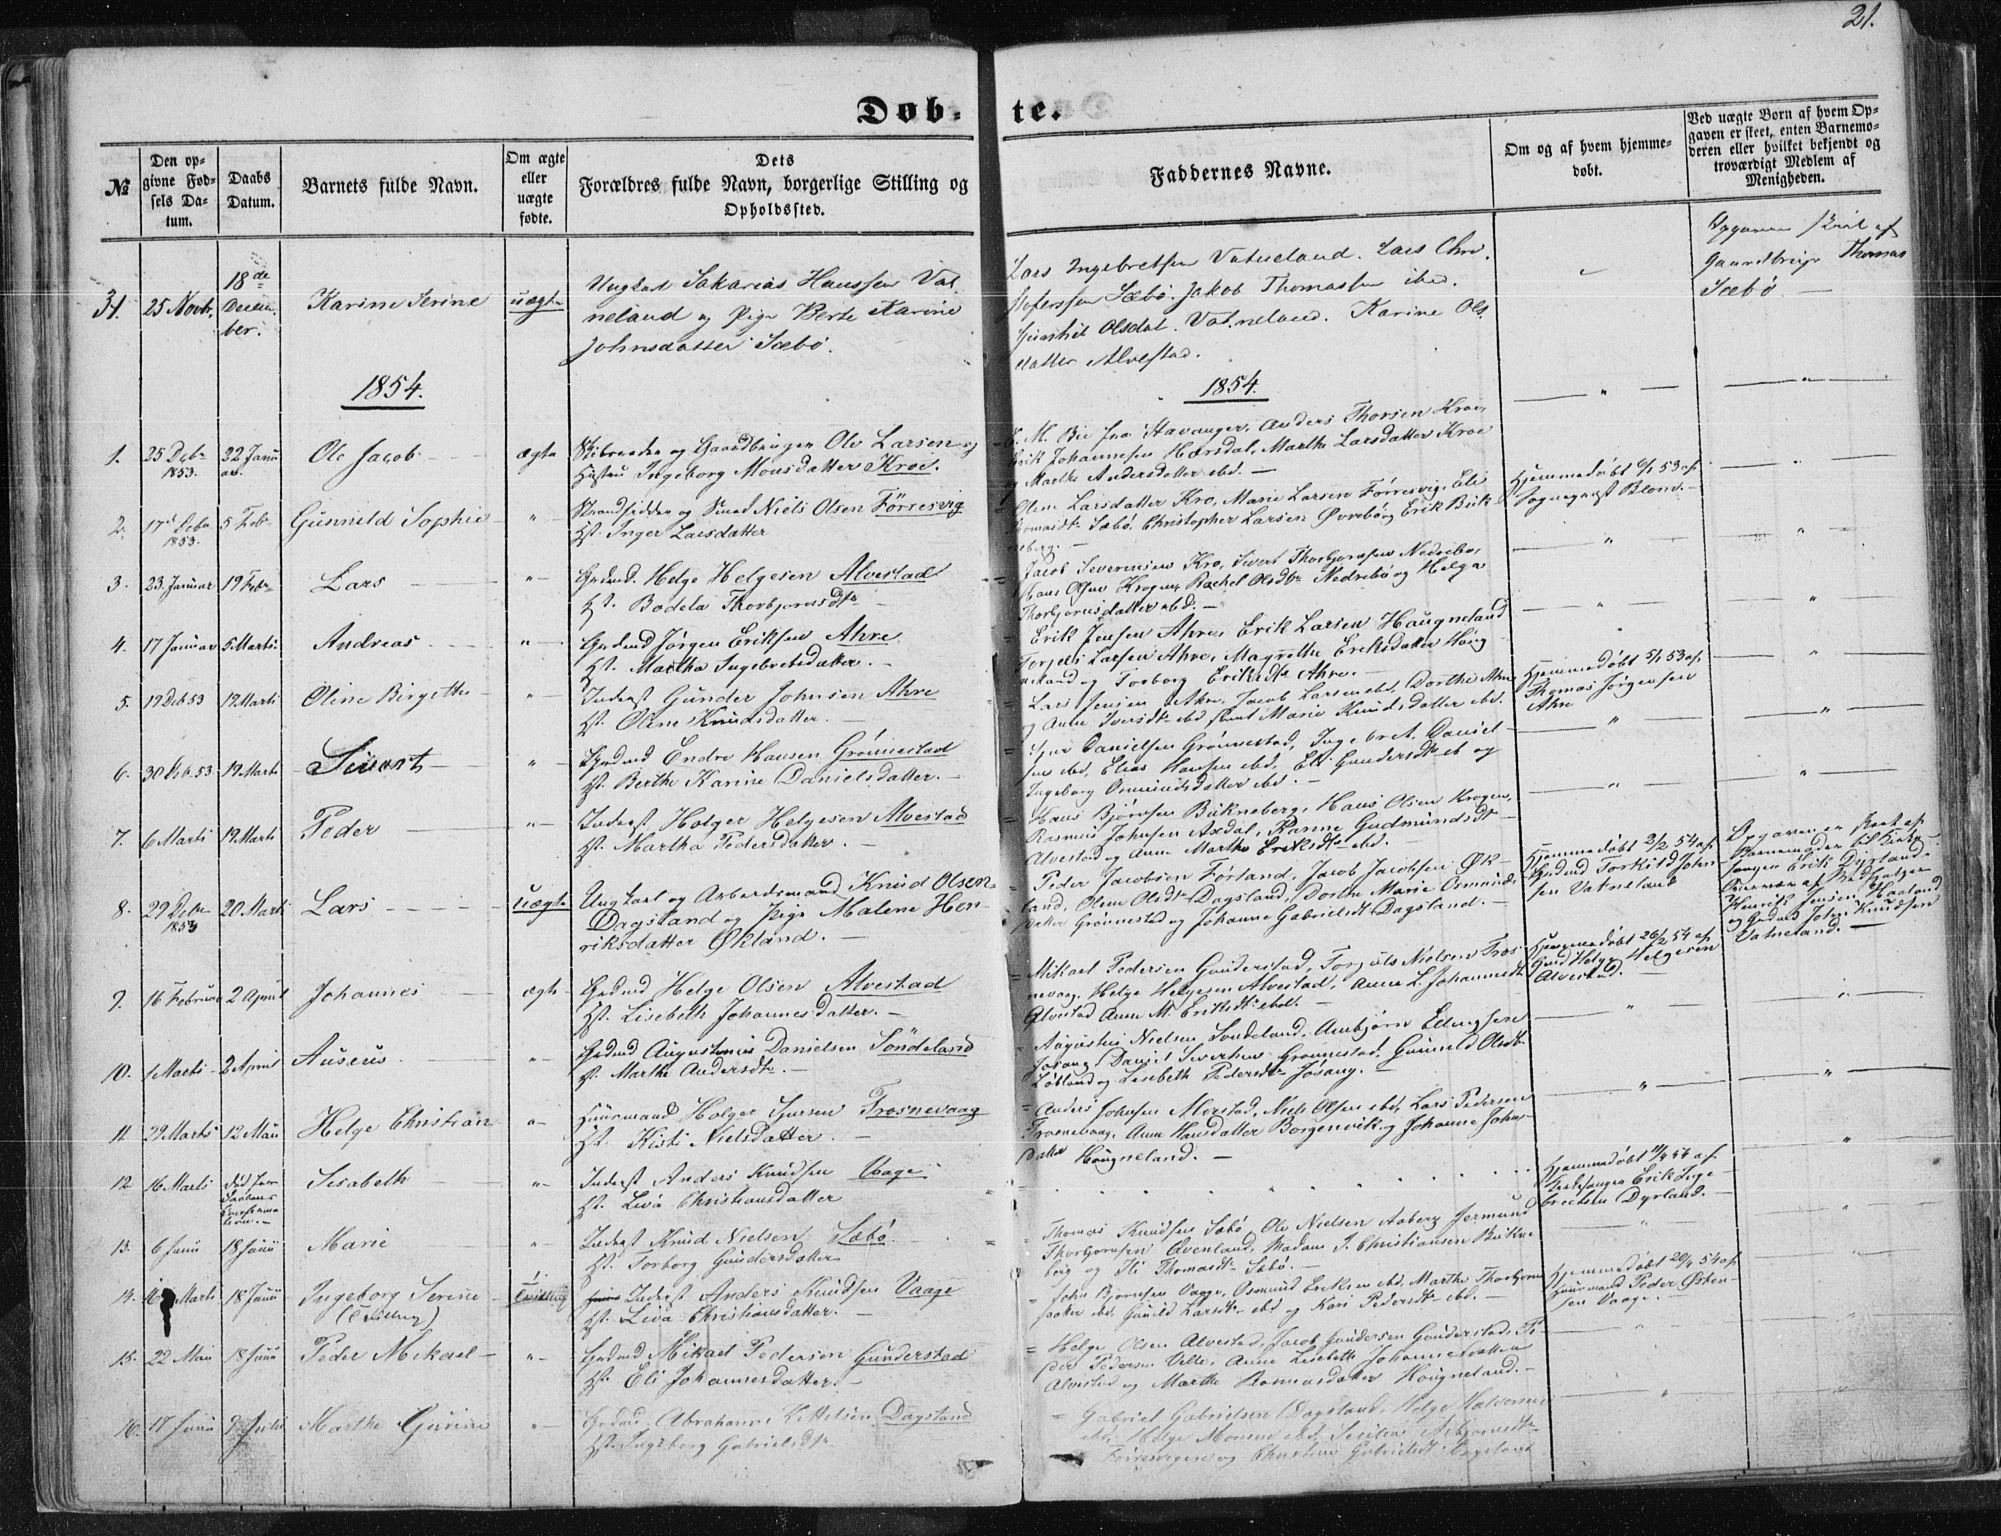 21.
Døb-
te.
№
Den op-
givne Fød-
sels Da-
tum.
Daabs
Datum.
Barnets fulde Navn.
Om ægte
eller
uægte
fødte.
Dets
Forældres fulde Navn, borgerlige Stilling og
Opholdssted.
Faddernes Navne.
Om og af hvem hjemme-
døbt.
Ved uægte Børn af hvem Op-
gaven er skeet, enten Barnemo-
deren eller hvilket bekjendt og
troværdigt Medlem af
Menigheden.
31. 25 Novb. 18de
Decem-
ber. Karine Serine uægte
Ungkarl Sakarias Hanssen Vat-
neland og Pige Berte Karine
Johnsdatter Sæbø.
Lars Ingebretsen Vatneland. Lars Chri-
stofersen Sæbø. Jakob Thomassen ibd.
Gunhil Olsdat. Vatneland. Karine Ols-
datter Alvestad.
Opgaven skeet af
Gaardbruger Thomas
Sæbø
1854.
1854.
1. 25 Debr
1853. 22 Janu
ar. Ole Jacob ægte
Skibsreder og Gaardbruger Ole Larsen og
Hustru Ingeborg Monsdatter Kroe.
E. M. Bie fra Stavanger, Anders Thorsen Kroe,
Erik Johannesen Hærsdal, Marthe Larsdatter Kroe
og Marthe Andersdatter ibd.
2. 17de Debr
1853. 5 Febr Gunnild Sophie "
Strandsidder og Smed Niels Olsen Førresvig
Hst. Inger Larsdatter
Olene Larsdatter Kro, Marie Larsen Førresvig, Eli
Thomasdtr Sæbø, Christopher Larsen Øvrebø og Erik Bukk-
neberg.
Hjemmedøbt 6/1 53 af
Sognepræst Blom.
3. 23. Januar 19 Febr Lars "
Grdmd Helge Helgesen Alvestad
Hst. Bodela Thorbjørnsdtr
Jacob Severinsen Kro, Sivert Thorbjørnsen Nedrebø,
Hans Olsen Krogen, Rachel Olsdtr Nedrebø og Helga
Thorbjørnsdatter ibd.
4. 17 Januar 5 Marts Andreas "
Grdmd Jørgen Eriksen Ahre
Hst. Martha Ingebretsdatter.
Erik Jensen Ahre, Erik Larsen Haugneland
Torjuls Larsen Ahre, Magrethe Eriksdatter Haug-
neland og Torborg Eriksdtr Ahre.
5. 19 Deb 53 19 Marts Oline Birgithe "
Inderst Gunder Johnsen Ahre
Hst. Oline Knudsdatter.
Lars Jensen Ahre, Jacob Larsen ibd, Dorthe Ahre
og Anne Iversdtr ibd samt Marie Knudsdatter ibd.
Hjemmedøbt 5/1 53 af
Thomas Jørgensen
Ahre
6. 30 Deb. 53 19 Marts Sivert "
Grdmd Endre Hansen Grønnestad
Hst. Berthe Karine Danielsdatter.
Sjur Danielsen Grønnestad, Ingebret Daniel-
sen ibd, Elias Hansen ibd, Eli Gundersdtr ib og
Ingeborg Osmundsdatter ibd.
7. 6 Marts 19 Marts Peder "
Inderst Holger Helgesen Alvestad
Hst. Martha Pedersdatter.
Hans Bjørnsen Bukneberg, Hans Olsen Krogen,
Rasmus Johnsen Axdal, Karine Gudmundsdtr
Alvestad og Anne Marthe Eriksdtr ibd.
8. 29 Debr
1853 20 Marts Lars uægte
Ungkarl og Arbeidsmand Knud Olsen
Dagsland og Pige Malene Hen-
riksdatter Økland.
Peder Jacobsen Førland, Jacob Jacobsen Øk-
land, Olene Olsdtr Dagsland, Dorthe Marie Osmunds-
datter Grønnestad og Johanne Gabrielsdtr Dagsland.
Hjemmedøbt 2/2 54 af
Grdmd Torkild John-
sen Vatneland
Opgaven er skeet af
Barnemoder til Kirke-
sanger Erik Dyrland,
Henrik Jensen Haaland
og Grdmd John Knudsen
Vatneland.
9. 16 Februar 2 April Johannes ægte
Grdmd Helge Olsen Alvestad
Hst. Lisebeth Johannesdatter.
Mikael Pedersen Gunderstad, Torjuls Nielsen Tros-
nevaag, Helge Helgesen Alvestad, Anna L. Johannesdtr
Alvestad Anne M. Eriksdtr ibd.
Hjemmedøbt 26/2 54 af
Grmd Helge Helgesen
Alvestad.
10. 1 Marts 2 April Auseus "
Grdmd Augustinus Danielsen Søndeland
Hst. Marthe Andersdtr.
Augustus Nielsen Søndeland, Ambjørn Edingsen
Josang, Daniel Siverksen Grønnestad, Gunnild Olsdtr
Løbland og Lisebeth Pedersdtr Josang.
11 29 Marts 12 Mai Helge Christian "
Huusmand Holger Sjursen Trosnevaag
Hst. Kisti Nielsdatter.
Anders Johnsen Alvestad, Niels Olsen ibd, Lars Pedersen
Trosnevaag, Anne Hansdatter Borgenvik og Johanne Johns-
datter Haugneland.
12 16 Marts Død før
Daabens
tion. Sisabeth "
Inderst Anders Knudsen Vaage
Hst. Liva Christiansdatter
Hjemmedøbt 11/4 54 af
Kirkesanger Erik Inge-
brechtsen Dyrland.
13. 6 Juni 18 Juni Marie "
Inderst Knud Nielsen Sæbø.
Hst. Torborg Gundersdatter
Thomas Knudsen Sæbø, Ole Nielsen Aaberg Jermund
Thorbjørnsen Øvenland, Madam J. Christiansen Bukne-
berg og Eli Thomasdtr Sæbø.
14. 16 Marts 18 Juni Ingeborg Serine
(Tvilling) Tvilling
Inderst Anders Knudsen Vaage
Hst. Liva Christiansdatter.
John Bjørnsen Vaage, Osmund Eriksen ibd, Marthe Thorbjørns-
datter ibd, Gunild Larsdtr ibd og Kari Pedersdtr ibd.
Hjemmedøbt 20/4 54 af
Huusmand Peder Østen-
sen Vaage.
15. 22 Mai 18 Juni Peder Mikael "
Grdmd Mikael Pedersen Gunderstad
Hst. Eli Johannesdatter.
Helge Olsen Alvestad, Jacob Gundersen Gunderstad, Pe-
der Pedersen Velle, Anne Lisebeth Johannesdatter
Alvestad og Marthe Rasmusdatter Haugneland.
16. 17 Juni 9 Juli Marthe Gurine "
Grdmd Abraham Kittelsen Dagsland
Hst. Ingeborg Gabrielsdtr
Gabriel Gabrielsen Dagsland, Helge Halvorsen
ibd, Helge Monsen ibd, Sicilia Asbjørnsdtr
Førresvigen og Christine Gabrielsdtr Dagsland